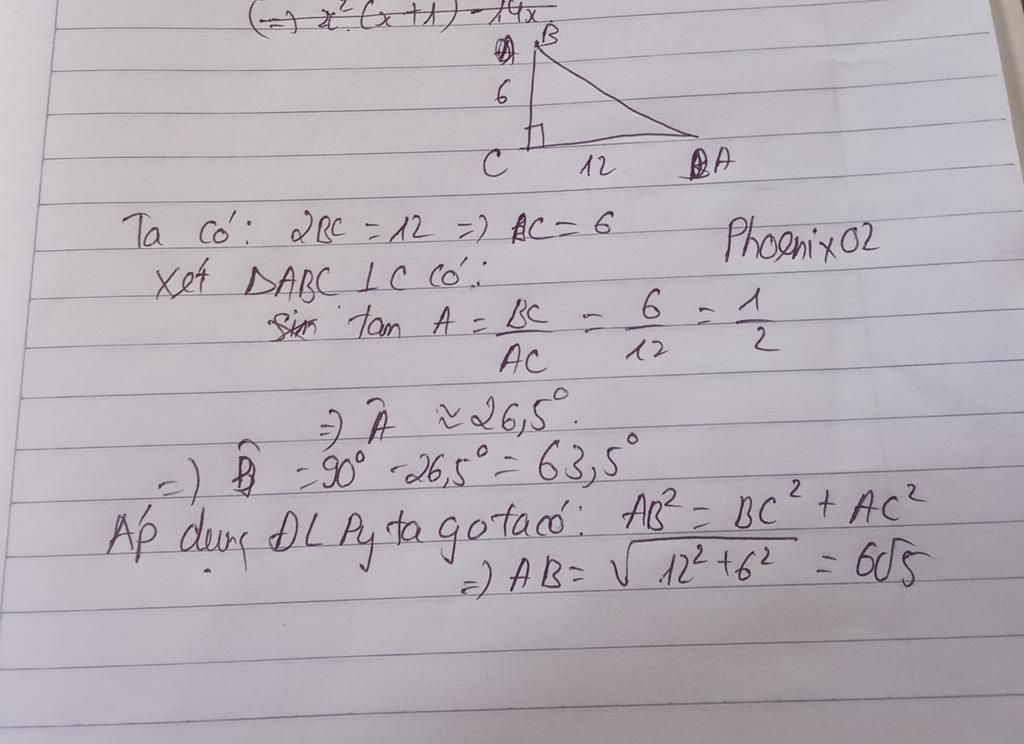 (=) x². (x+1) - 14x
B
6
C 12 A
Ta có: 2BC = 12 =) BC = 6
Phoenix02
Xét ΔABC ⊥C có:
tan A = BC/AC = 6/12 = 1/2
=) Â ≈ 26,5°.
=) B̂ = 90° - 26,5° = 63,5°
Áp dụng ĐL Pytago ta có: AB² = BC² + AC²
=) AB = √(12² + 6²) = 6√5